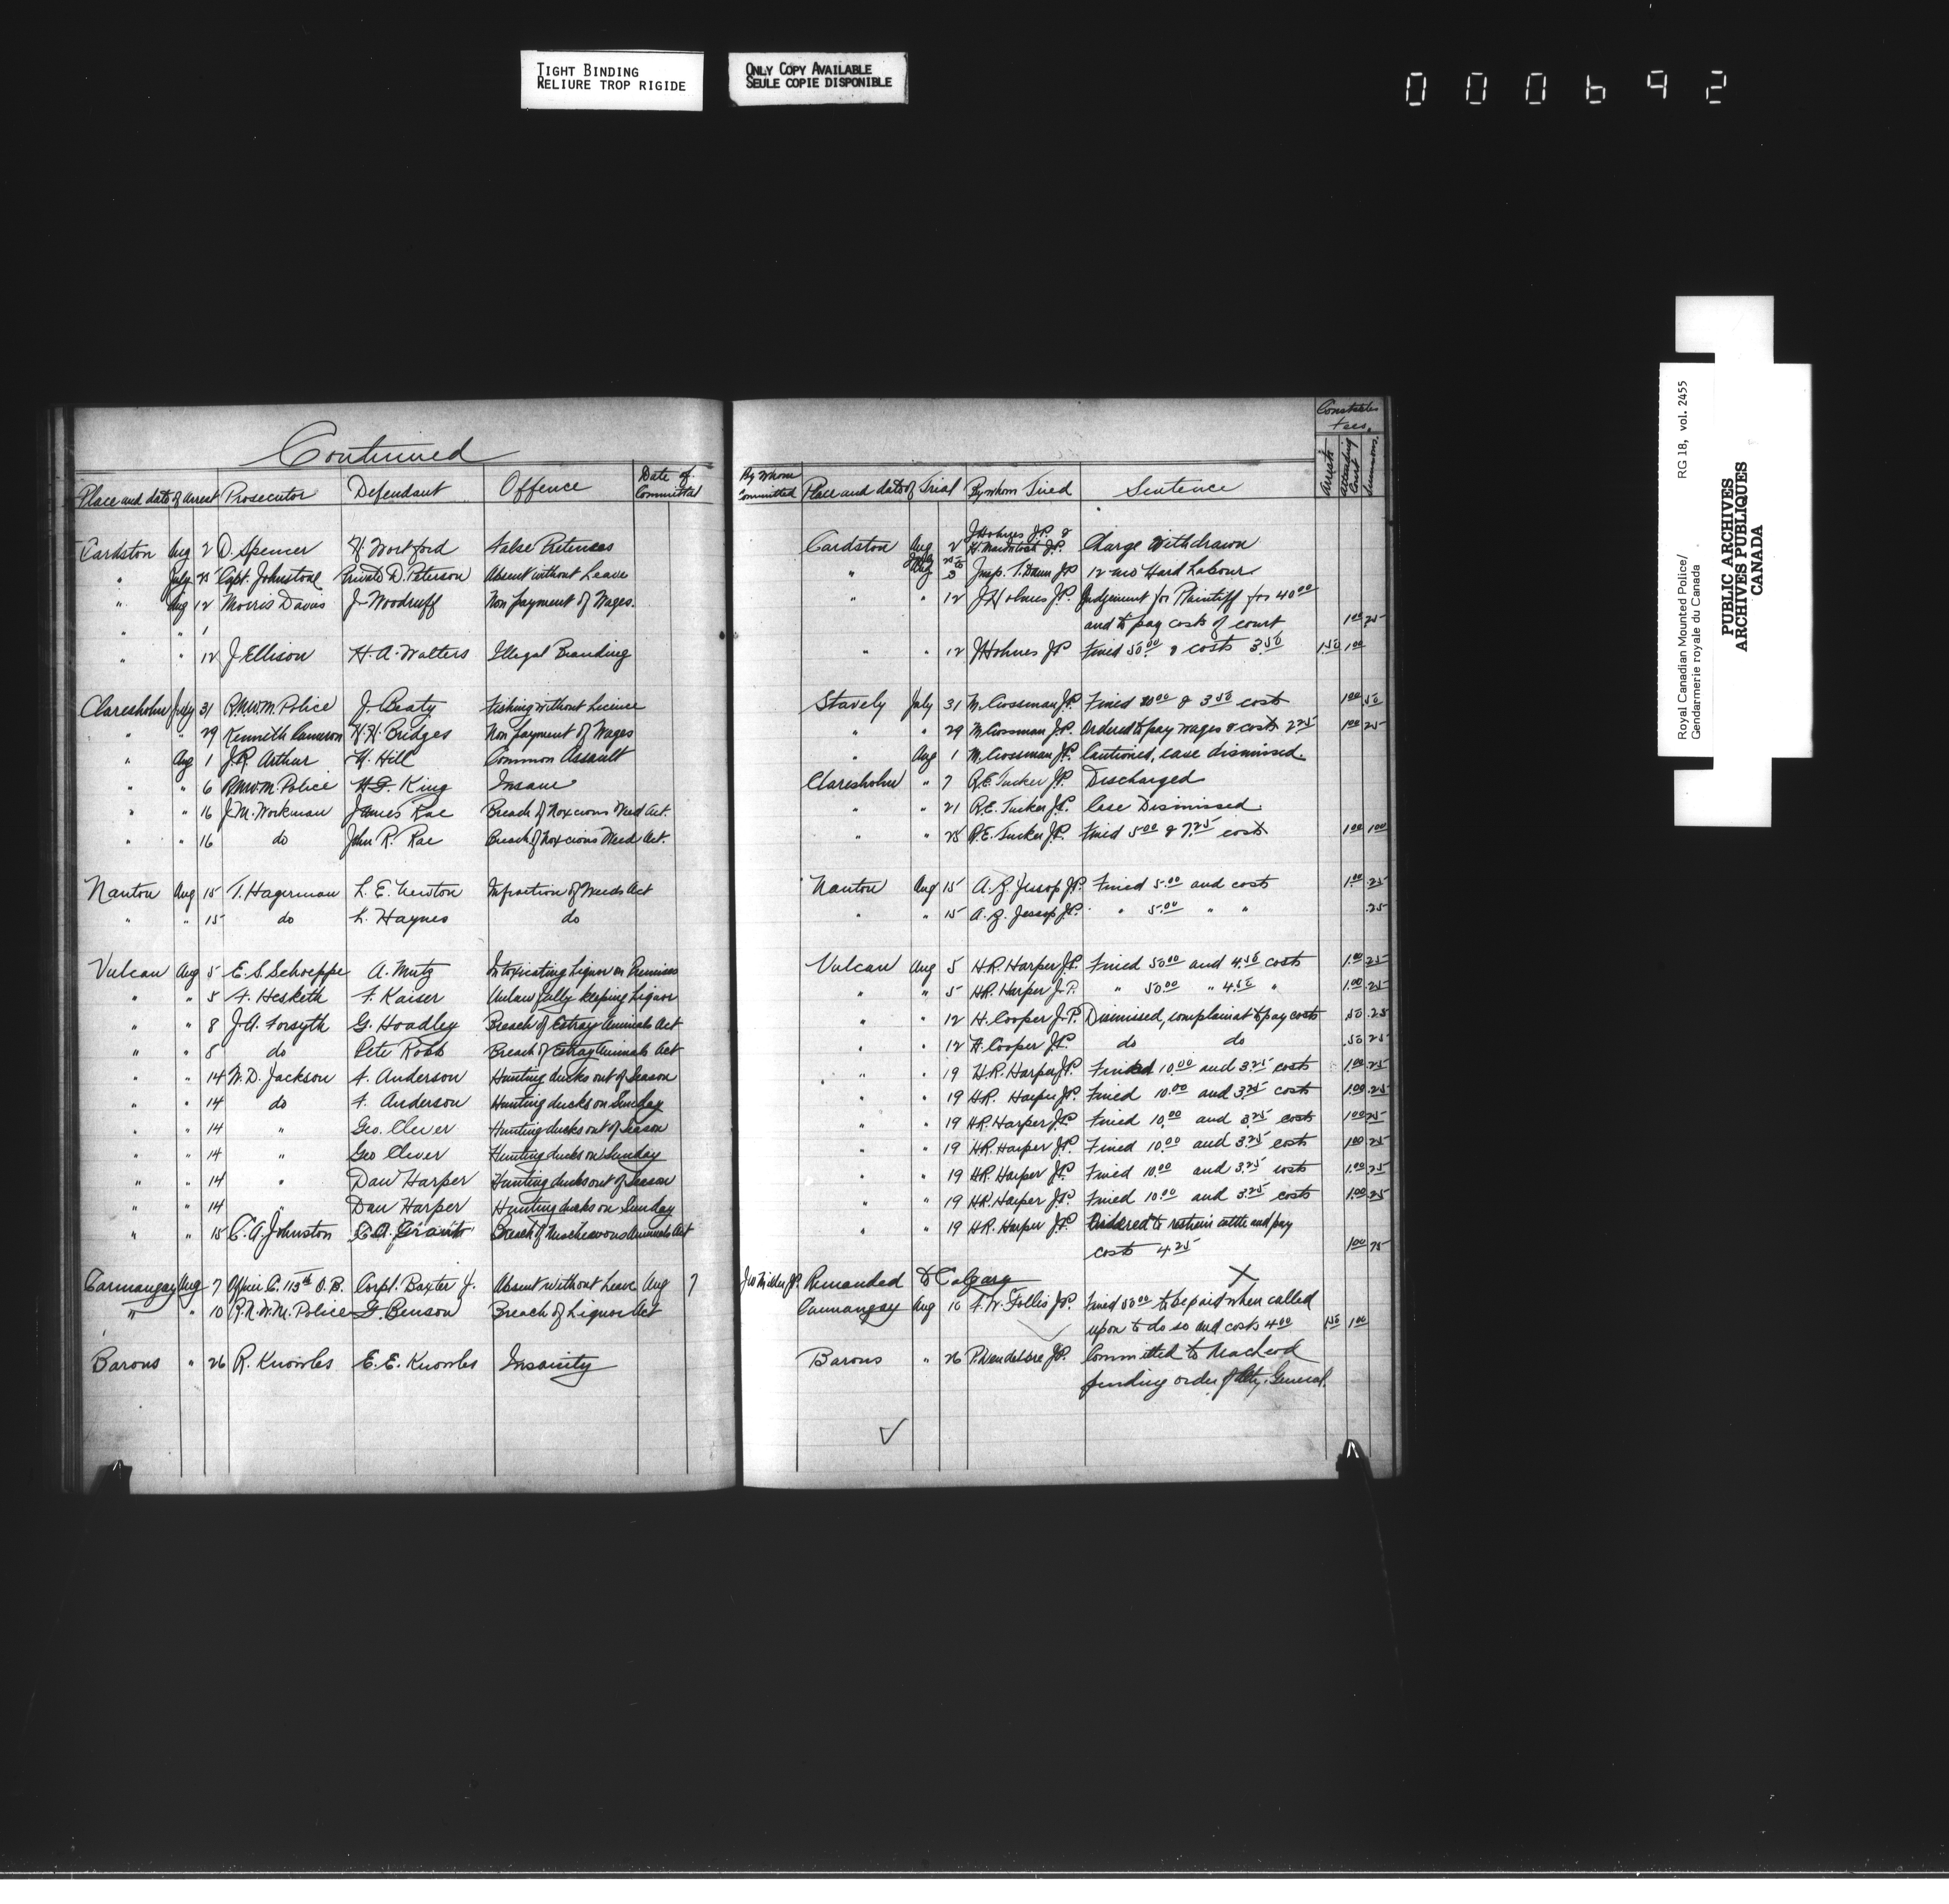 TIGHT BINDING
RELIURE TROP RIGIDE
ONLY COPY AVAILABLE
SEULE COPIE DISPONIBLE
000692
Royal Canadian Mounted Police/ RG 18, vol. 2455
Gendarmerie royale du Canada
PUBLIC ARCHIVES
ARCHIVES PUBLIQUES
CANADA
Continued
Constables fees.
Place and date of Arrest Prosecutor Defendant Offence Date of Committal By Whom Committed Place and date of Trial By whom Tried Sentence Arrests Attending Court Summons.
J Holmes J.P. &
Cardston Aug 2 D. Spencer W. Wortford False Pretenses Cardston Aug 2 H. Macintosh J.P. Charge Withdrawn
" July 25 Capt. Johnstone Private D. Peterson Absent without Leave " Aug 3 Insp. T. Dann JP 12 mo Hard Labour
" Aug 12 Morris Davis J. Woodruff Non payment of Wages. " " 12 J Holmes J.P. Judgement for Plaintiff for 40 00
" " 1 and to pay costs of court 1 00 25
" " 12 J Ellison H. A. Walters Illegal Branding " " 12 J Holmes JP Fined 50 00 & costs 3.50 1.50 1 00
Claresholm July 31 R.N.W.M. Police J. Beaty Fishing without Licence Stavely July 31 M. Crossman J.P. Fined 20 00 & 3 50 costs 1 00 50
" " 29 Kenneth Cameron H. H. Bridges Non payment of Wages " " 29 M. Crossman J.P. Ordered to pay wages & costs 2 25 1 00 25
" Aug 1 J.R. Arthur H. Hill Common Assault " Aug 1 M. Crossman J.P. Cautioned, case dismissed.
" " 6 R.N.W.M. Police H. G. King Insane Claresholm " 7 R.E. Tucker J.P. Discharged
" " 16 J. M. Workman James Rae Breach of Noxcious Weed Act. " " 21 R.E. Tucker J.P. Case Dismissed
" " 16 do John R. Rae Breach of Noxcious Weed Act. " " 25 R.E. Tucker J.P. Fined 5 00 & 7.25 costs 1 00 1 00
Nanton Aug 15 T. Hagerman L. E. Newton Infraction of Weeds Act Nanton Aug 15 A. Z. Jessop J.P. Fined 5.00 and costs 1.00 .25
" " 15 do L. Haynes do " " 15 A. Z. Jessop J.P. " 5.00 " " .25
Vulcan Aug 5 E. S. Schoeppe A. Mutz Intoxicating Liquor on Premises Vulcan Aug 5 H.R. Harper J.P. Fined 50.00 and 4.50 costs 1.00 25
" " 5 F. Hesketh F. Kaiser Unlawfully keeping Liquor " " 5 H.R. Harper J.P. " 50.00 " 4.50 " 1.00 .25
" " 8 J. A. Forsyth G. Hoadley Breach of Estray Animals Act " " 12 H. Cooper J.P. Dismissed, complainat to pay costs .50 .25
" " 8 do Pete Robb Breach of Estray Animals Act " " 12 H. Cooper J.P. do do .50 25
" " 14 W. D. Jackson F. Anderson Hunting ducks out of Season " " 19 H. R. Harper J.P. Fined 10.00 and 3.25 costs 1.00 25
" " 14 do F. Anderson Hunting ducks on Sunday " " 19 H.R. Harper J.P. Fined 10.00 and 3.25 costs 1.00 .25
" " 14 " Geo. Clever Hunting ducks out of Season " " 19 H.R. Harper J.P. Fined 10.00 and 3.25 costs 1.00 25
" " 14 " Geo Clever Hunting ducks on Sunday " " 19 H.R. Harper J.P. Fined 10.00 and 3.25 costs 1.00 25
" " 14 " Dan Harper Hunting ducks out of Season " " 19 H.R. Harper J.P. Fined 10.00 and 3.25 costs 1.00 25
" " 14 " Dan Harper Hunting ducks on Sunday " " 19 H.R. Harper J.P. Fined 10.00 and 3.25 costs 1.00 25
" " 15 C. A. Johnston Breach of Mischeavous Animals Act " " 19 H.R. Harper J.P. Ordered to restrain cattle and pay
costs 4.25 1 00 75
Carmangay Aug 7 Officer C. 113th O.B. Corpl. Baxter J. Absent without Leave Aug 7 Remanded to Calgary X
" " 10 R.N.W.M. Police G. Benson Breach of Liquor Act Carmangay Aug 10 F. W. Follis J.P. Fined 50 00 to be paid when called
upon to do so and costs 4 00 1.50 1 00
Barons " 26 R. Knowles E. E. Knowles Insanity Barons " 26 J.P. Committed to Macleod
pending order of Atty. General.